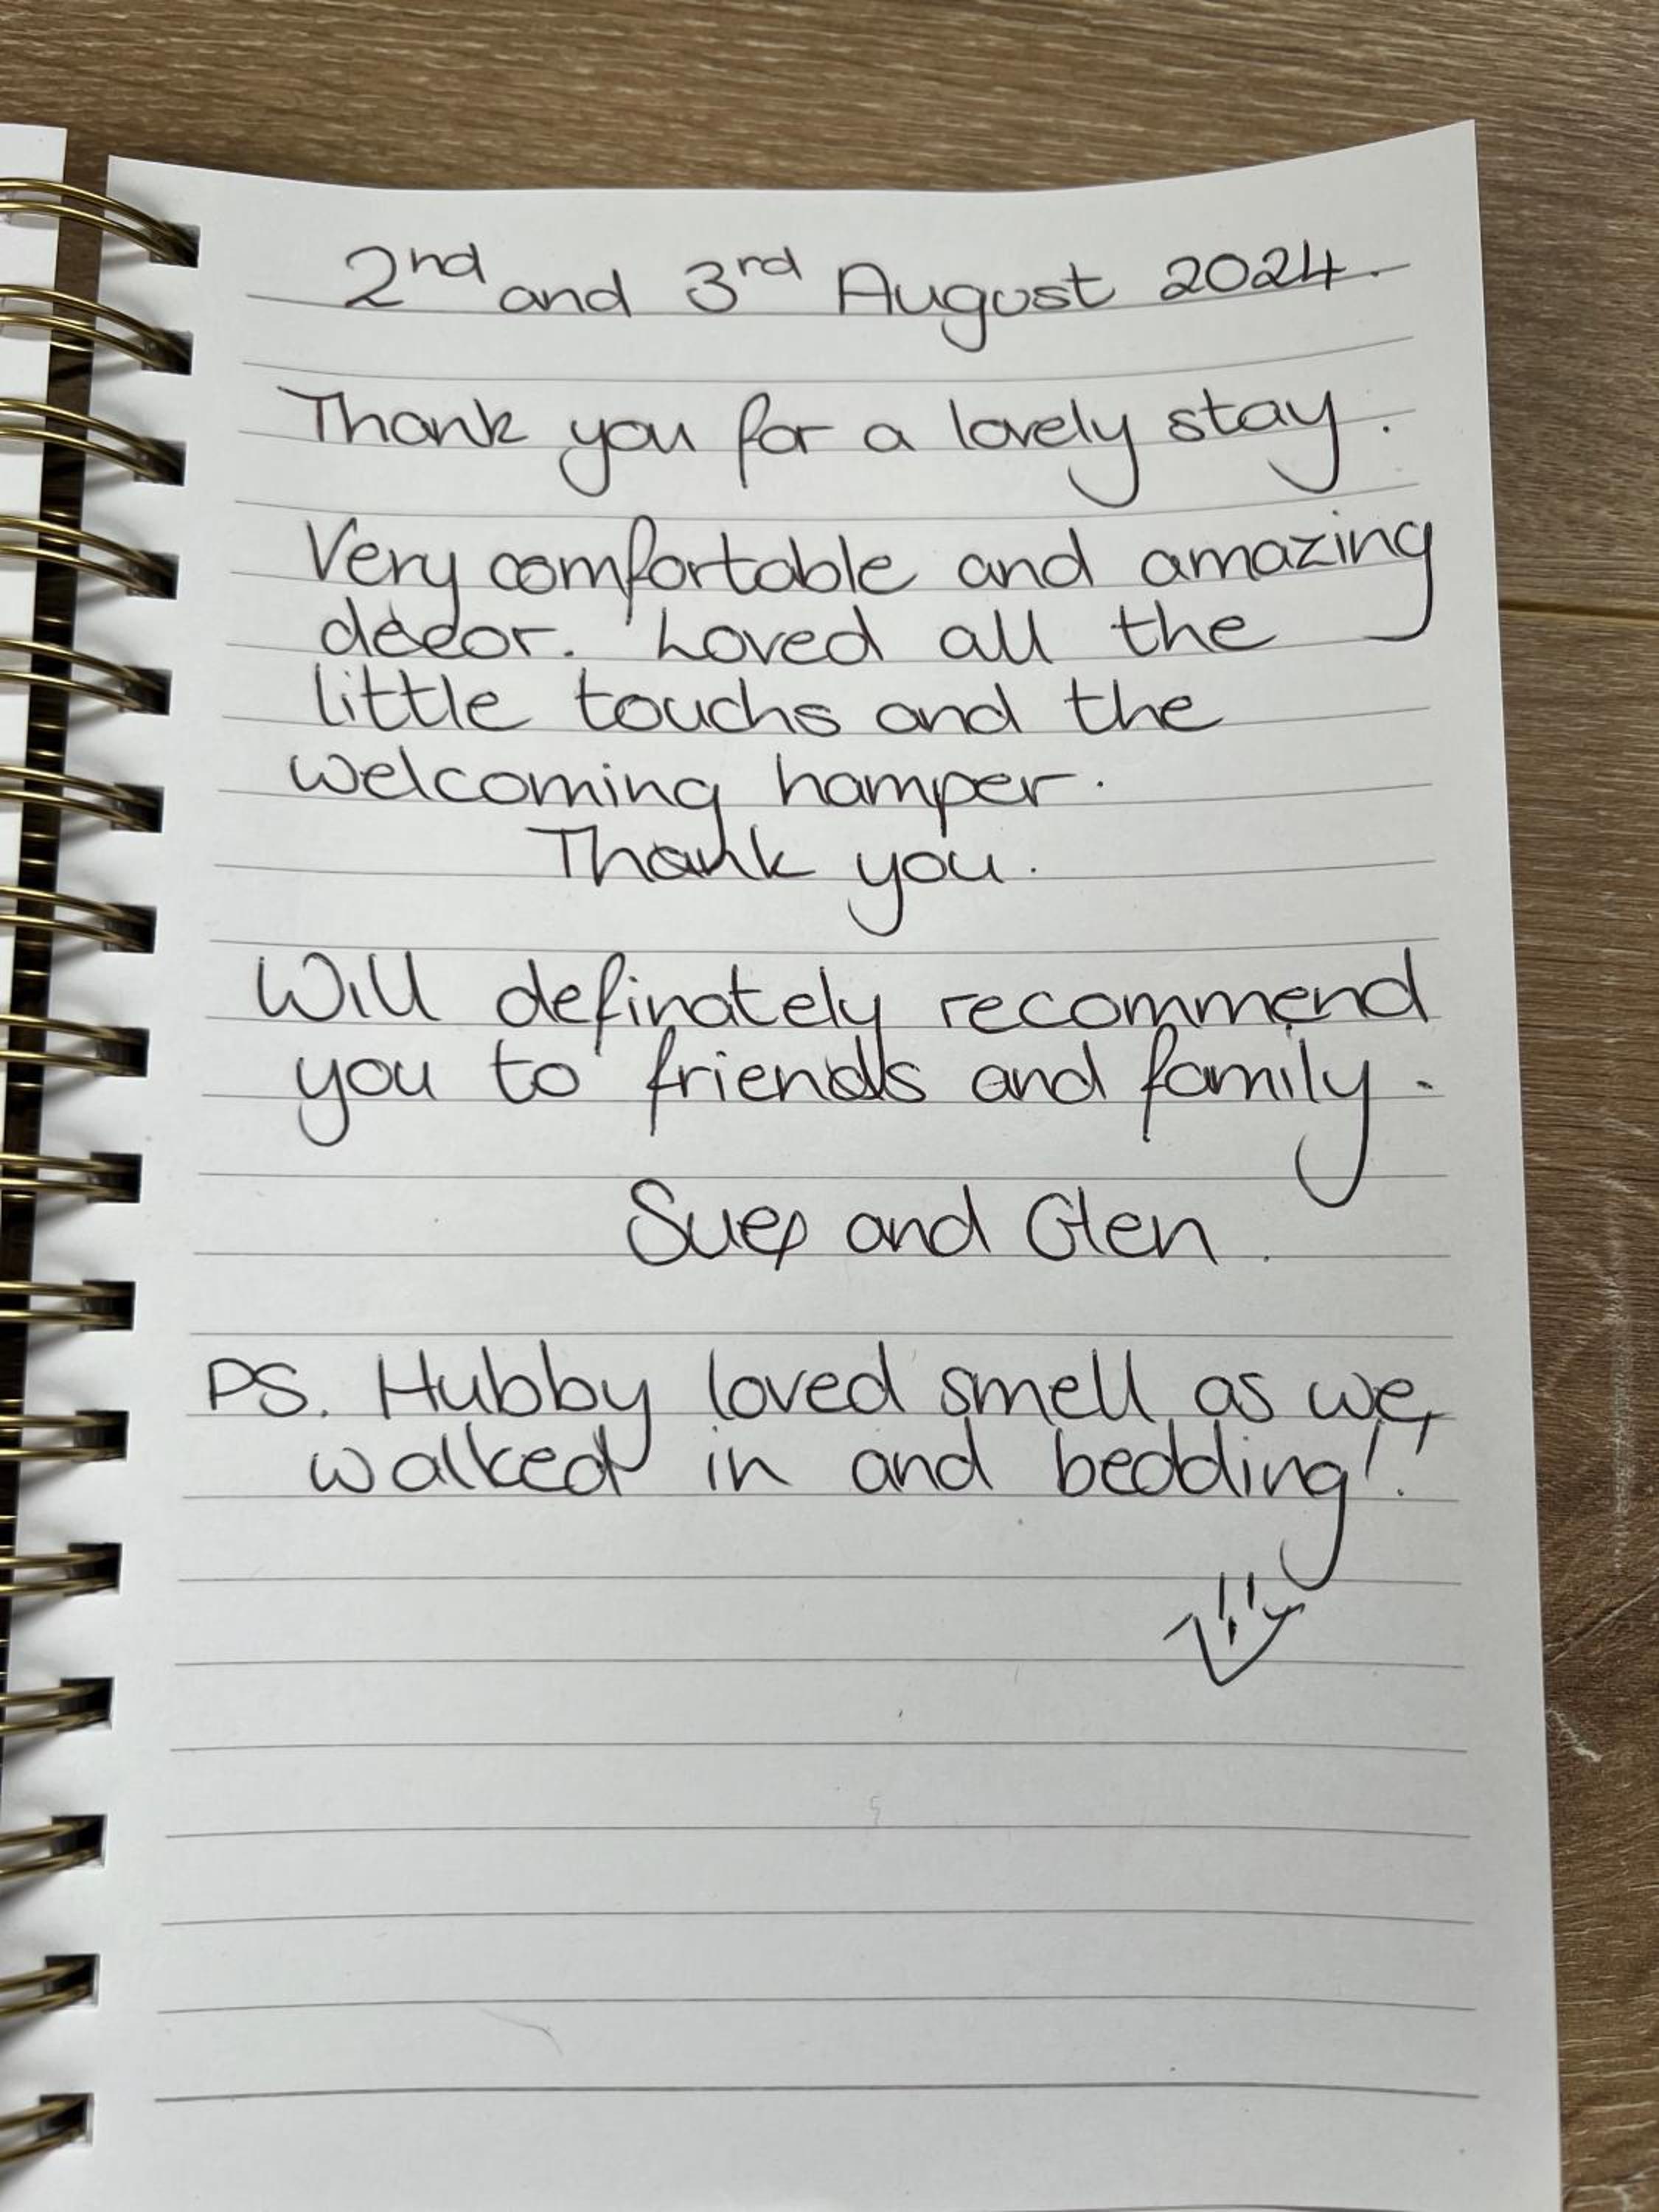 2nd and 3rd August 2024.
Thank you for a lovely stay.
Very comfortable and amazing
decor. Loved all the
little touchs and the
welcoming hamper.
Thank you.
Will definately recommend
you to friends and family.
Sue and Glen.
PS. Hubby loved smell as we
walked in and bedding!!